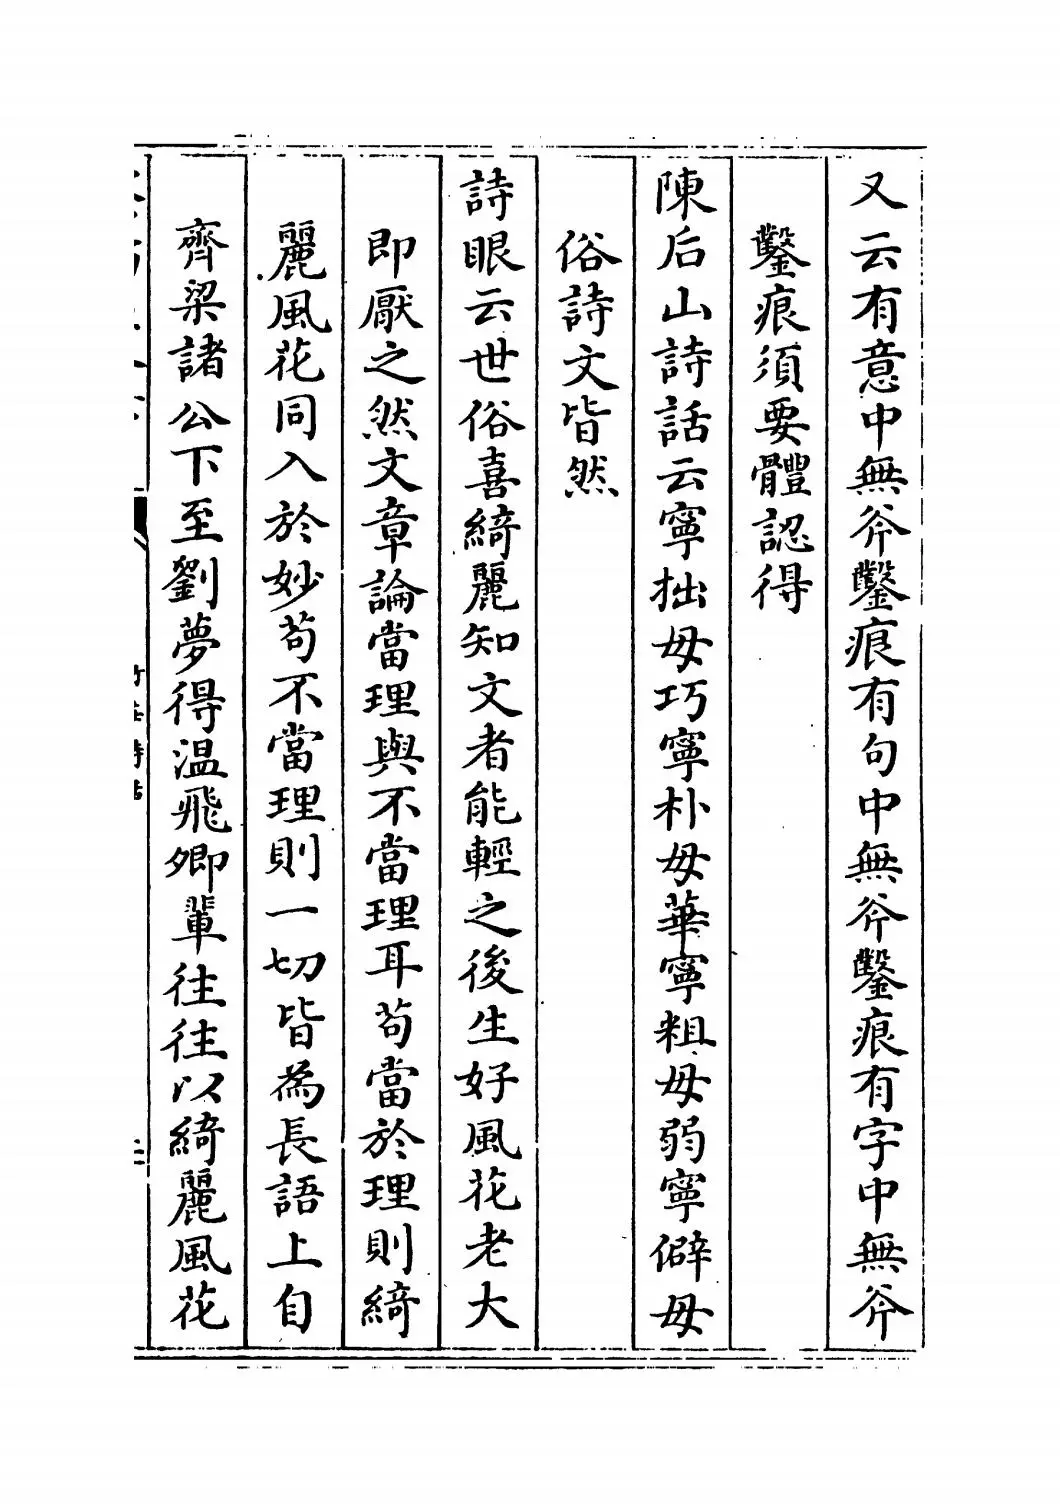 又云有意中無斧鑿痕有句中無斧鑿痕有字中無斧
鑿痕須要體認得
陳后山詩話云寧拙毋巧寧朴毋華寧粗毋弱寧僻毋
俗詩文皆然
詩眼云世俗喜綺麗知文者能輕之後生好風花老大
即厭之然文章論當理與不當理耳茍當於理則綺
麗風花同入於妙茍不當理則一切皆為長語上自
齊梁諸公下至劉夢得温飛卿輩往往以綺麗風花